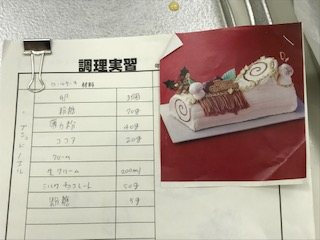 調理実習
ロールケーキ 材料
卵 3個
粉糖 70g
薄力粉 40g
ココア 20g
クリーム
生クリーム 200ml
ミルクチョコレート 50g
粉糖 9g
ブッシュドノエル